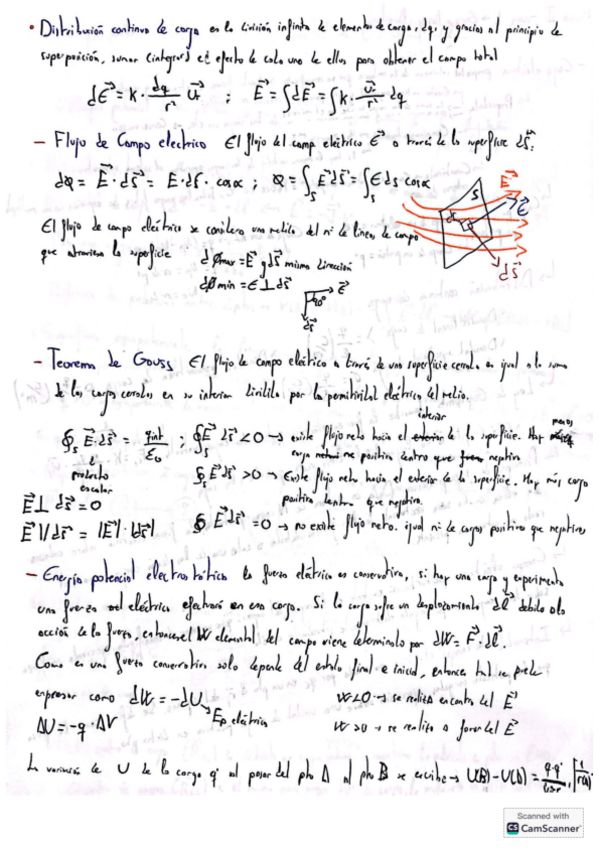 • Distribución continua de carga es la división infinita de elementos de carga, dq, y gracias al principio de
superposición, sumar (integrar) el efecto de cada uno de ellos para obtener el campo total
dE⃗ = k · dq/r² u⃗ ; E⃗ = ∫dE⃗ = ∫k · u⃗/r² dq
– Flujo de Campo electrico El flujo del campo eléctrico E⃗ a través de la superficie dS⃗:
dΦ = E⃗ · ds⃗ = E · ds · cosα ; Φ = ∫_S E⃗ ds⃗ = ∫_S E ds cosα
E⃗
S
E⃗
α
ds⃗
El flujo de campo eléctrico se considera una medida del nº de líneas de campo
que atraviesa la superficie dΦmax = E⃗ y ds⃗ misma dirección
dΦmin = E ⊥ ds⃗
90° E⃗
ds⃗
– Teorema de Gauss El flujo de campo eléctrico a través de una superficie cerrada es igual a la suma
de las cargas cerradas en su interior dividida por la permitividad eléctrica del medio.
∮_S E⃗ · ds⃗ = qint/ε₀ ; ∮_S E⃗ ds⃗ < 0 → existe flujo neto hacia el interior de la superficie. Hay menos
carga positiva dentro que negativa
producto
escalar
∮_S E⃗ ds⃗ > 0 → Existe flujo neto hacia el exterior de la superficie. Hay más carga
positiva dentro que negativa.
E⃗ ⊥ ds⃗ = 0
E⃗ // ds⃗ = |E⃗| · |ds⃗|
∮ E⃗ ds⃗ = 0 → no existe flujo neto. igual nº de cargas positivas que negativas
– Energía potencial electrostática la fuerza eléctrica es conservativa, si hay una carga y experimenta
una fuerza eléctrica en esa carga. Si la carga sufre un desplazamiento dl⃗ debido a la
acción de la fuerza, entonces el W elemental del campo viene determinado por dW = F⃗ · dl⃗.
Como es una fuerza conservativa solo depende del estado final e inicial, entonces se puede
expresar como dW = -dU
Ep eléctrica
W<0 → se realiza en contra del E⃗
ΔU = -q · ΔV
W>0 → se realiza a favor del E⃗
La variación de U de la carga q' al pasar del pto A al pto B se escribe → U(B) - U(A) =
Scanned with
CS CamScanner